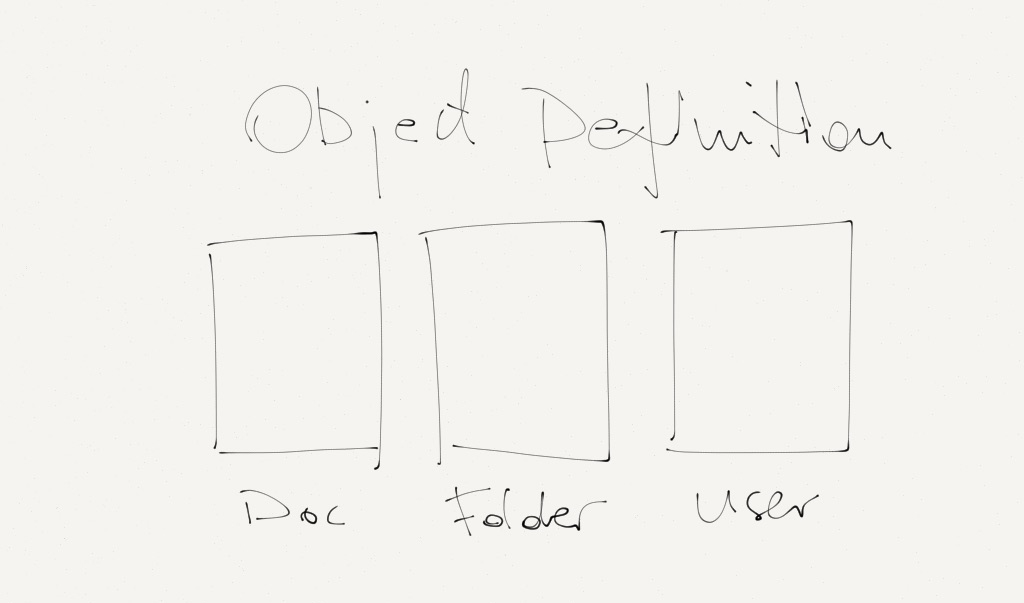 Object Definition
Doc Folder User